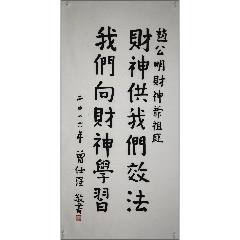 趙公明財神爺祖庭
財神供我們效法
我們向財神學習
二〇一六年 曾仕強 敬書